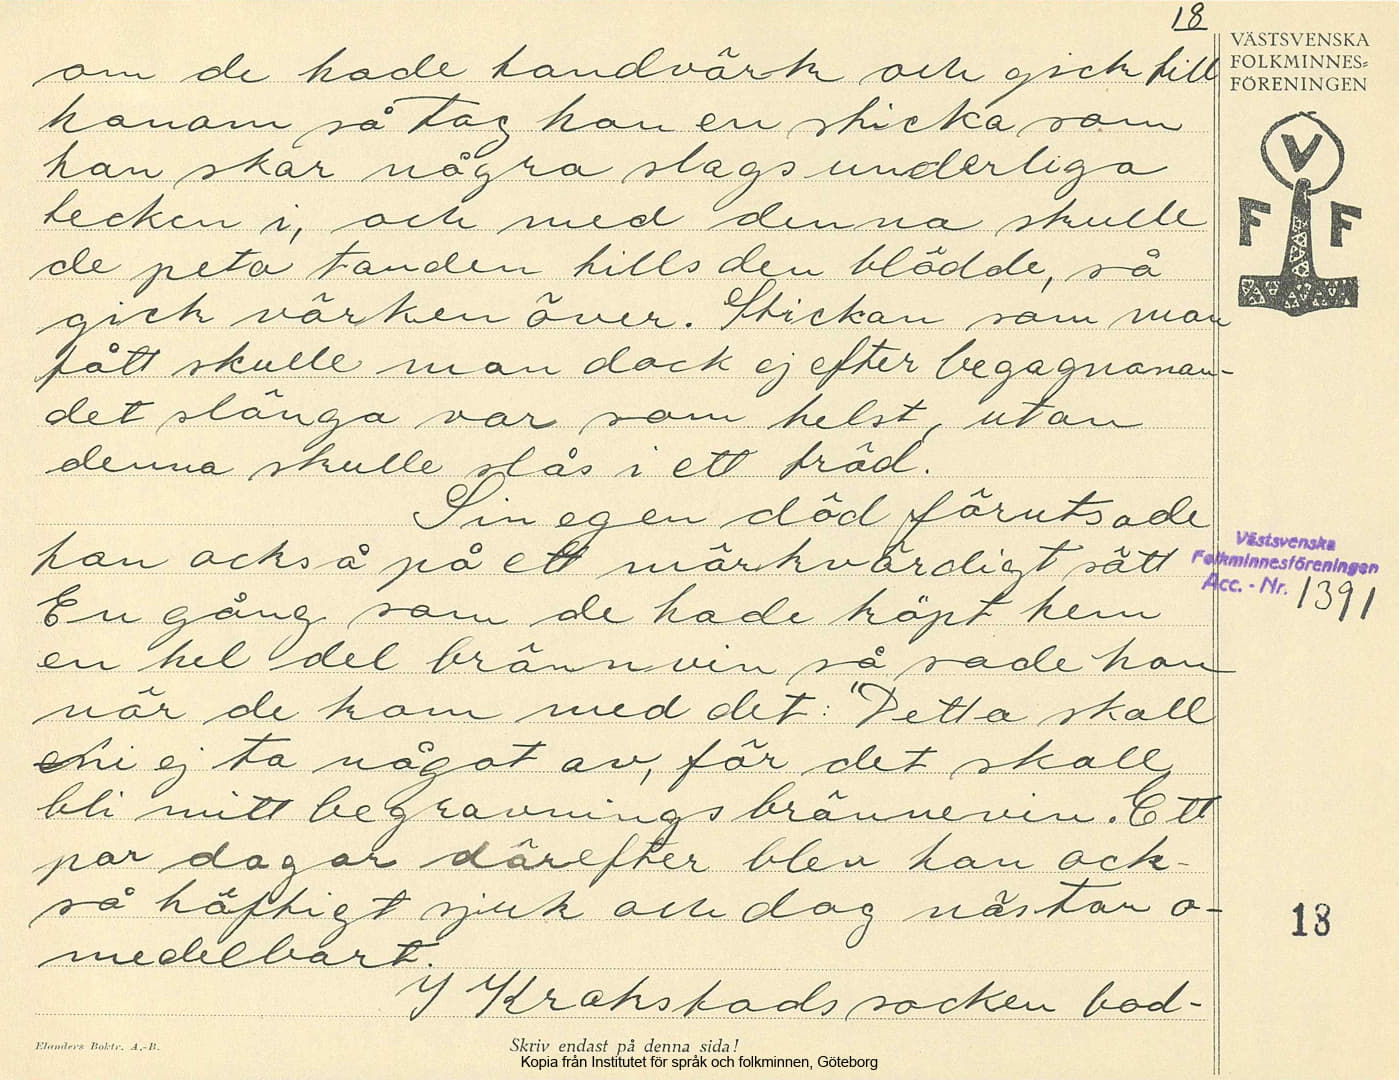 18
VÄSTSVENSKA
FOLKMINNES=
FÖRENINGEN
V
F F
om de hade tandvärk och gick till
honom så tog han en sticka som
han skar några slags underliga
tecken i, och med denna skulle
de peta tanden tills den blödde, så
gick värken över. Stickan som man
fått skulle man dock ej efter begagnonan-
det slänga var som helst, utan
denna skulle slås i ett träd.
Sin egen död förutsade
han också på ett märkvärdigt sätt
En gång som de hade köpt hem
en hel del brännvin så sade han
när de kom med det: "Detta skall
ni ej ta något av, för det skall
bli mitt begravningsbrännevin. Ett
par dagar därefter blev han ock-
så häftigt sjuk och dog nästan o-
medelbart.
I Krokstads socken bod-
Västsvenska
Folkminnesföreningen
Acc. - Nr. 1391
18
Elanders Boktr. A.-B.
Skriv endast på denna sida!
Kopia från Institutet för språk och folkminnen, Göteborg